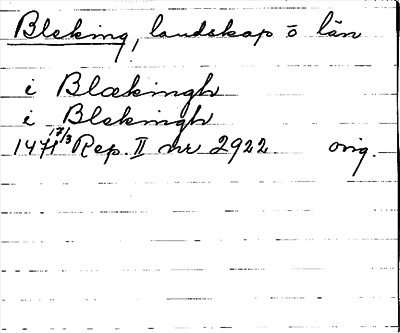 Bleking, landskap o län
i Blækingh
i Blekingh
1471 17/3 Rep. II nr 2922 orig.